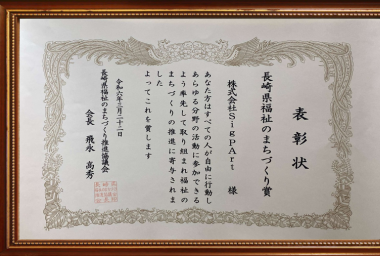 表彰状
長崎県福祉のまちづくり賞
株式会社SigPArt 様
あなた方はすべての人が自由に行動し
あらゆる分野の活動に参加できる
よう率先して取り組まれ福祉の
まちづくりの推進に寄与されま
した
よってこれを賞します
令和六年三月二十二日
長崎県福祉のまちづくり推進協議会
会長 飛永 高秀